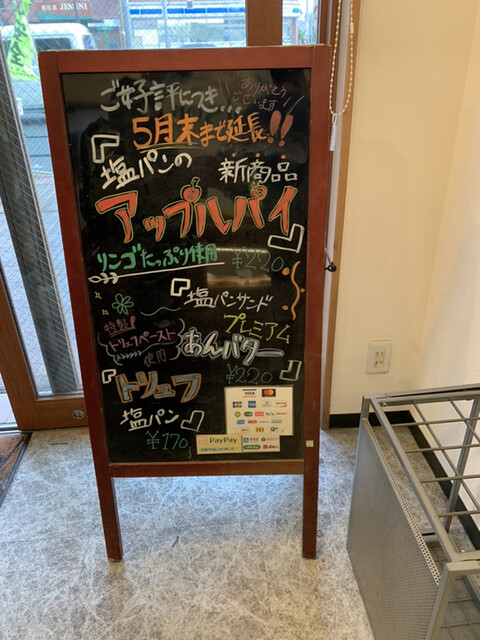 ご好評につき...
ありがとう
ございます!!
5月末まで延長!!
『塩パンの
新商品
アップルパイ』
リンゴたっぷり使用
¥220
『塩パンサンド
プレミアム
あんバター』
¥220
特製
トリュフペースト
使用
『トリュフ
塩パン』
¥170
VISA
PayPay